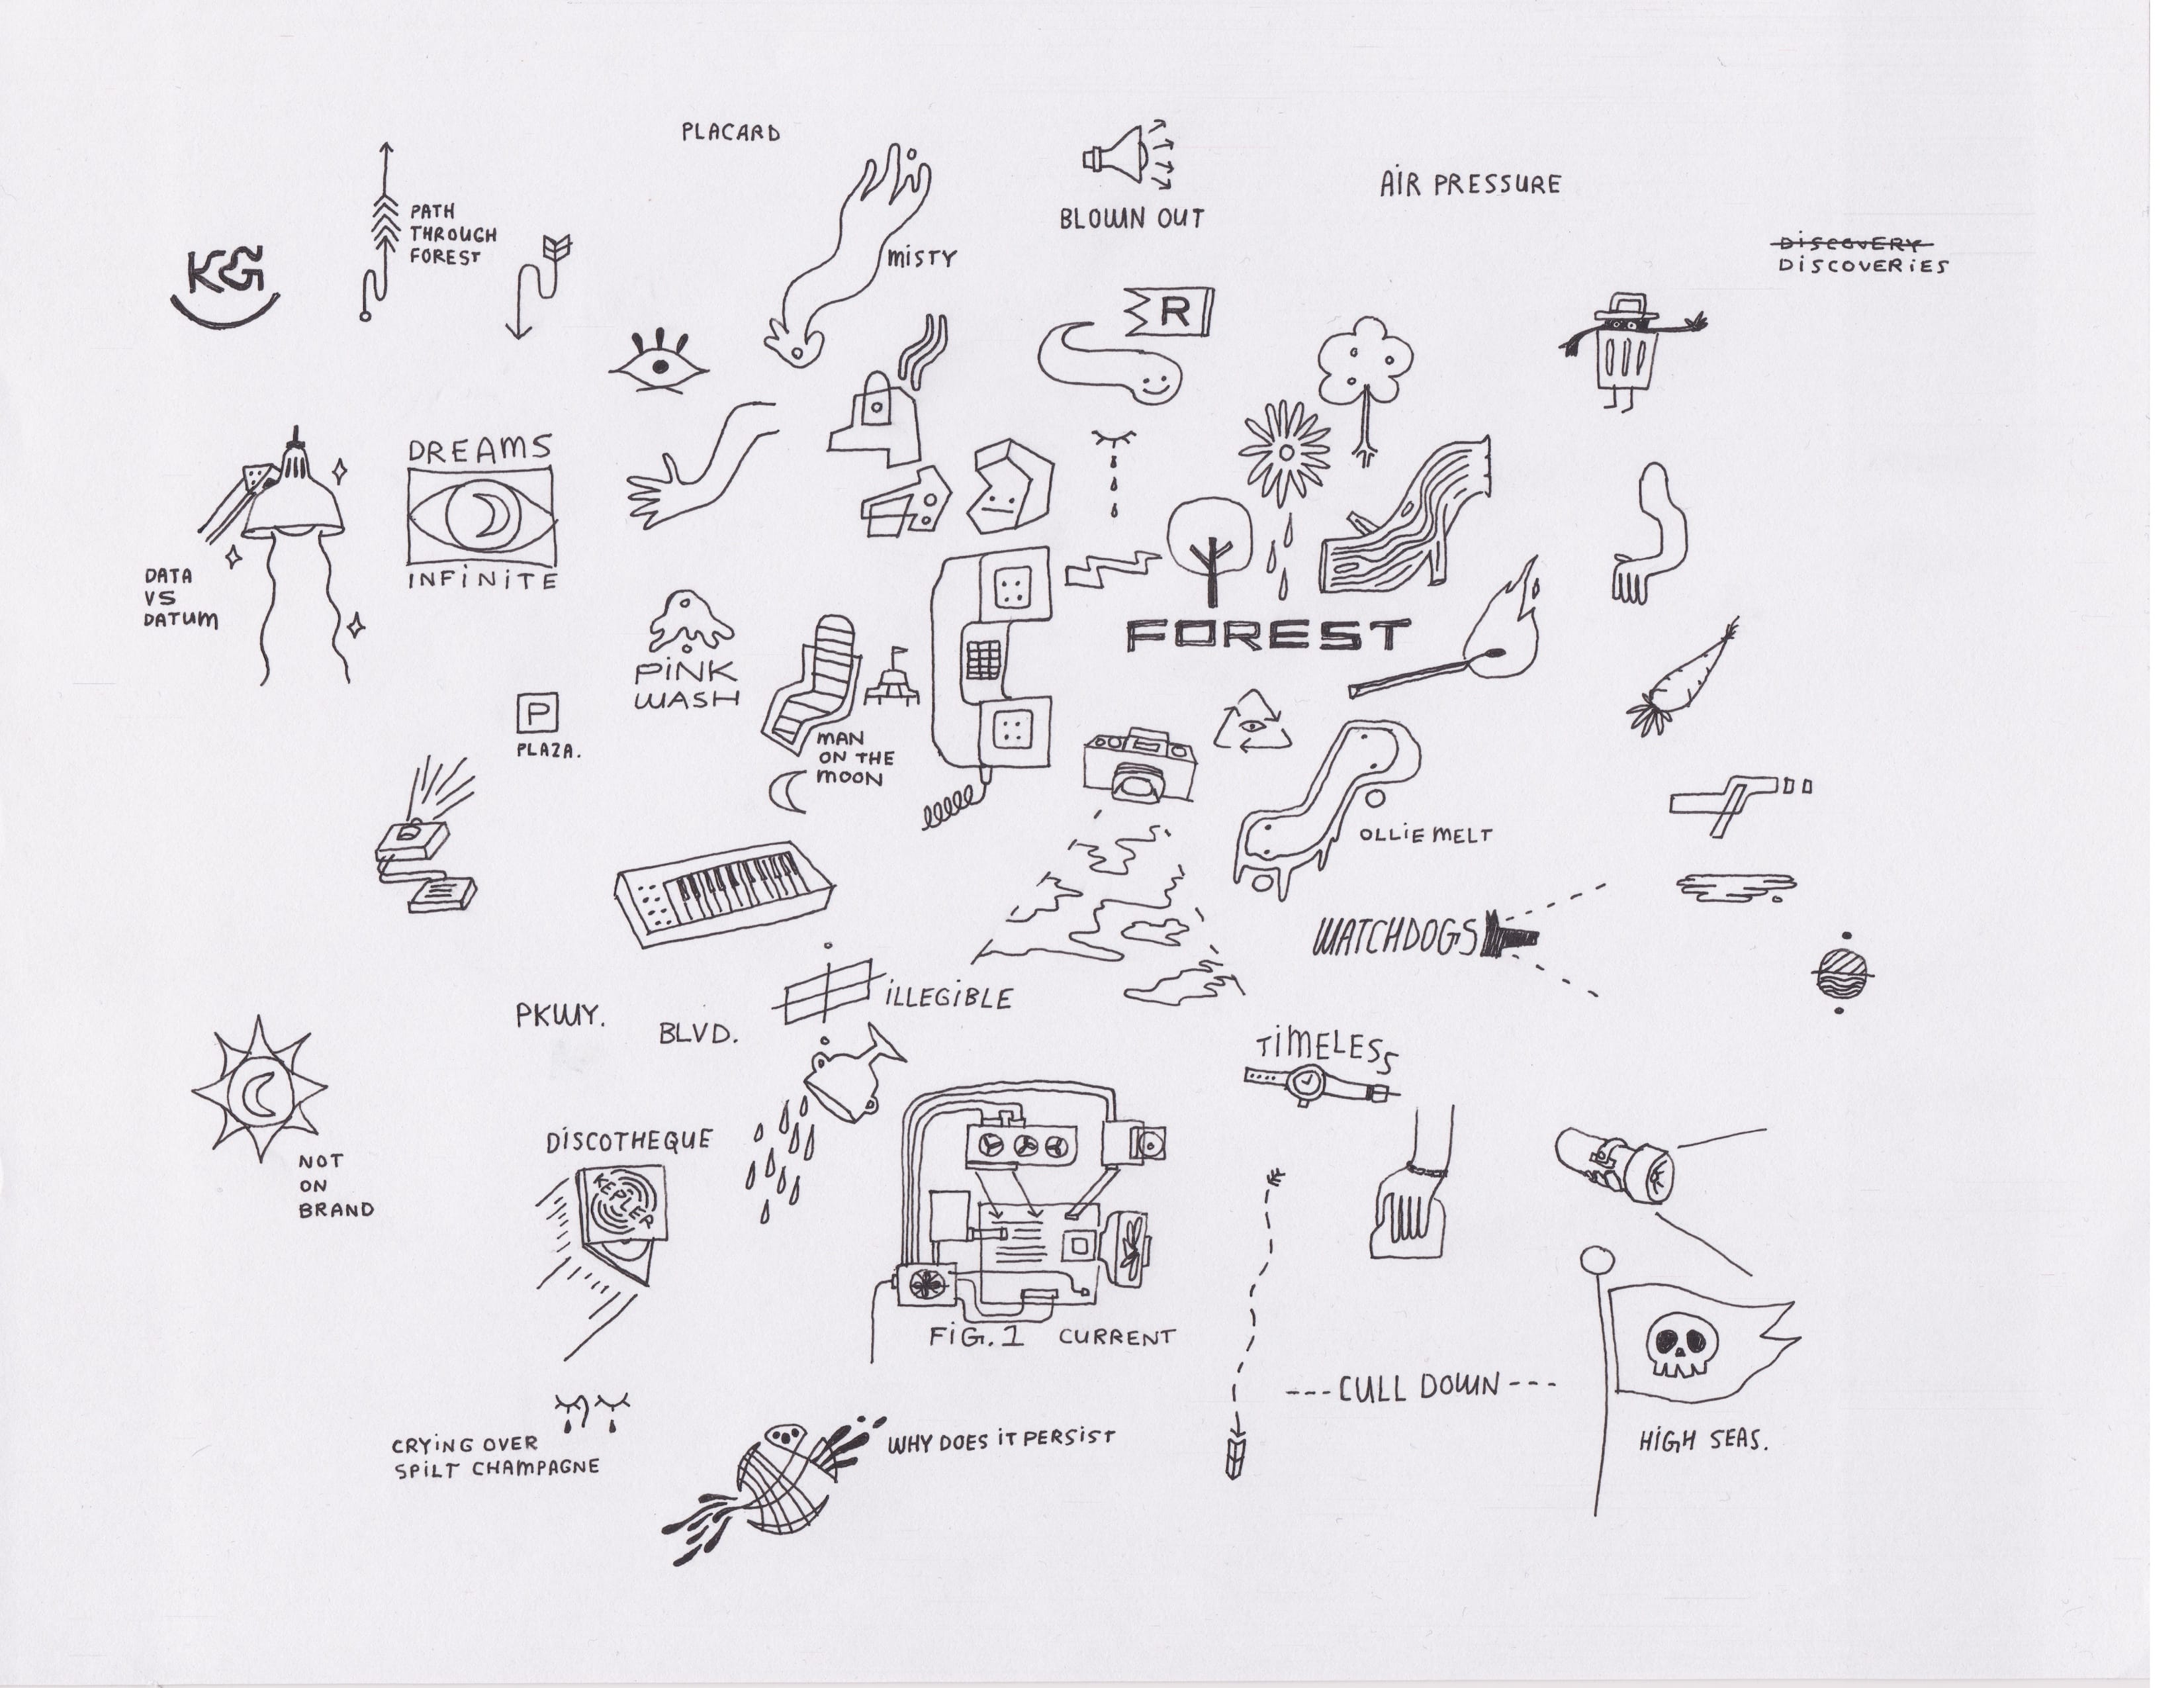 PLACARD
BLOWN OUT
AiR PRESSURE
PATH
THROUGH
FOREST
KG
MiSTY
DiSCOVERY
DiSCOVERiES
R
DREAMS
INFiNiTE
DATA
VS
DATUM
FOREST
PiNK
WASH
P
PLAZA.
MAN
ON THE
MOON
OLLiE MELT
WATCHDOGS
iLLEGiBLE
PKWY.
BLVD.
TiMELESS
DiSCOTHEQUE
KEPLER
NOT
ON
BRAND
FiG. 1 CURRENT
---CULL DOWN---
CRYiNG OVER
SPiLT CHAMPAGNE
WHY DOES iT PERSiST
HiGH SEAS.